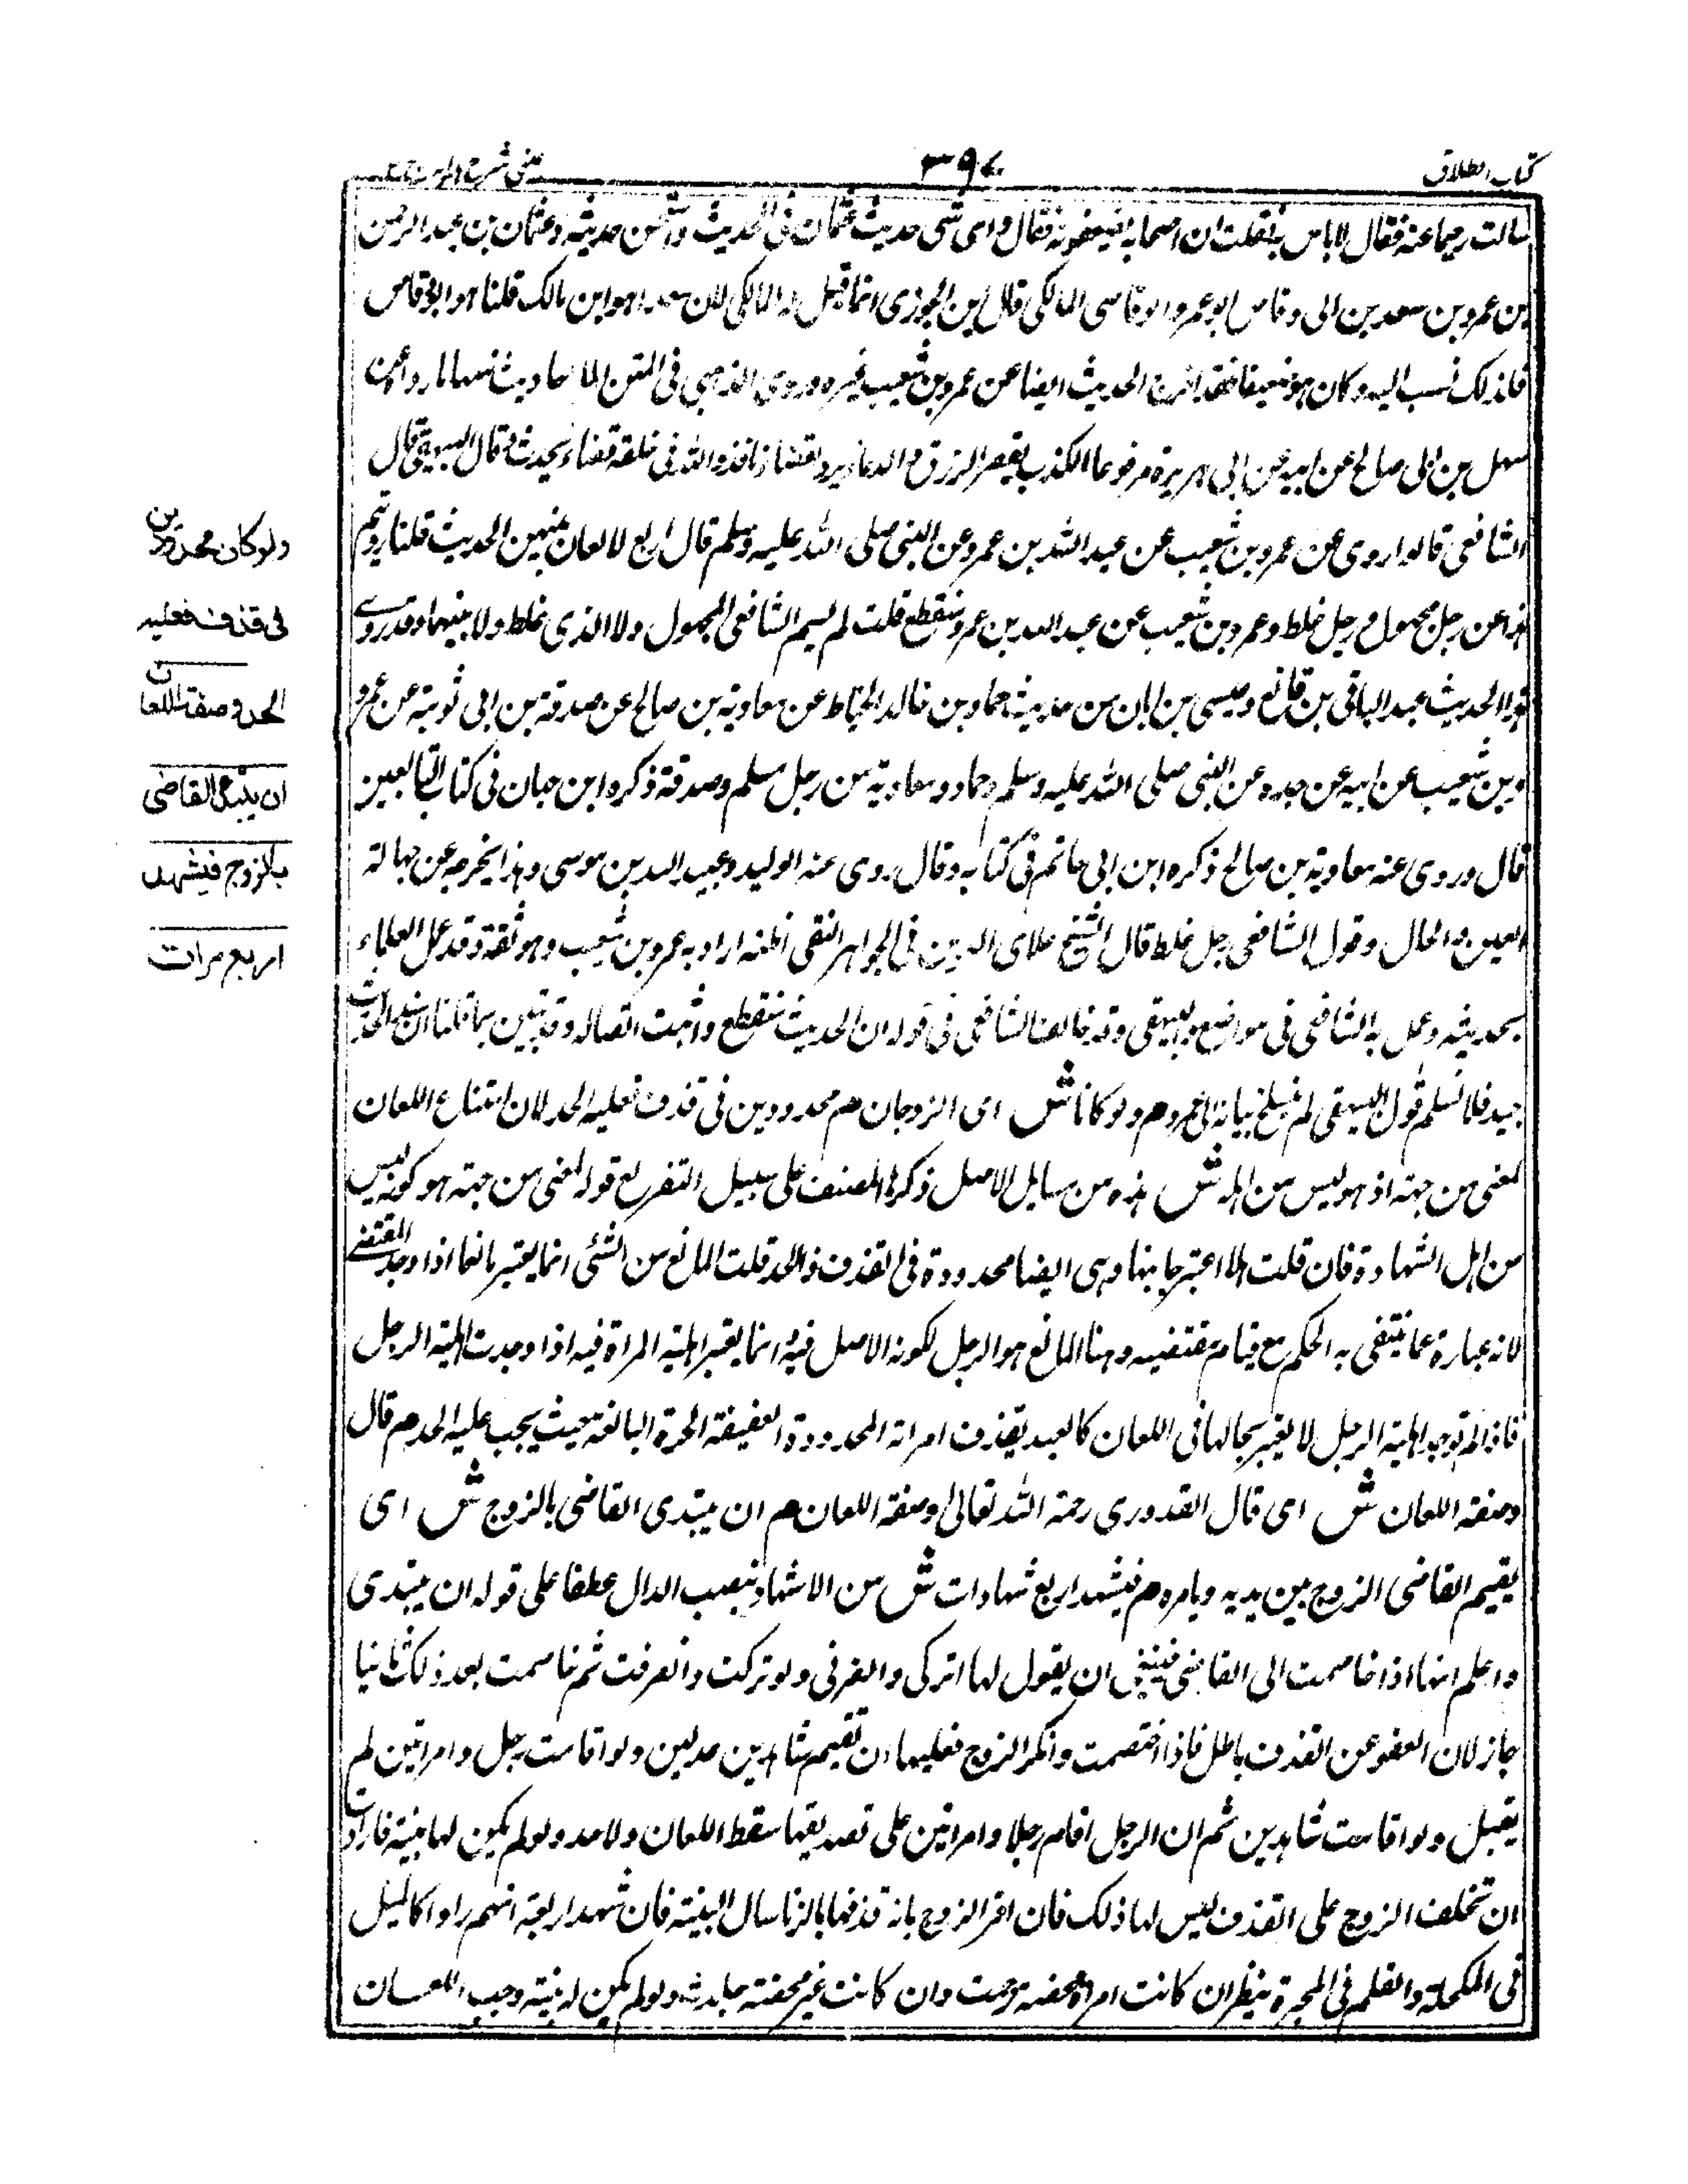 كتاب الطلاق
٣٩٧
سالت رحيما عنه فقال لا باس به فقلت ان اصحابه يضعفونه فقال واى شى حديث عثمان فى الحديث واستحسن حديثه وعثمان بن عبد الرحمن
بن عمرو بن سعد بن ابى وقاص ابو عمرو الوقاصى المالكى قال ابن الجوزى انما قيل له المالكى لان سعدا هو ابن مالك قلنا هو ابو وقاص
فلذلك نسب اليه وكان هو ضعيفا فقد اخرج الحديث ايضا عن عمرو بن شعيب غيره وروى الذهبى فى
سهل بن ابى صالح عن ابيه عن ابى هريرة مرفوعا الكذب ينقص الرزق والدعاء يرد القضاء ولله فى خلقه قضاء يحدث قال البيهقى قال
الشافعى قالوا روى عن عمرو بن شعيب عن عبد الله بن عمرو عن النبى صلى الله عليه وسلم قال اربع لا لعان بينهن الحديث قلنا رويتم
هذا عن رجل مجهول ورجل غلط وعمرو بن شعيب عن عبد الله بن عمرو منقطع قلت لم يسم الشافعى المجهول ولا الذى غلط ولا بينهما وقد روى
هذا الحديث عبد الباقى بن قانع وعيسى بن ابان من حديث حماد بن خالد الخياط عن معاوية بن صالح عن صدقة بن ابى توبة عن عمرو
بن شعيب عن ابيه عن جده عن النبى صلى الله عليه وسلم وحماد ومعاوية من رجل مسلم وصدقة ذكره ابن حبان فى كتاب التابعين
قال وروى عنه معاوية بن صالح ذكره ابن ابى حاتم فى كتابه وقال روى عنه الوليد وعبيد الله بن موسى وهذا يخرجه عن جهالة
العين والحال وقول الشافعى رجل غلط قال الشيخ علاى الدين فى الجواهر النقى اظنه اراد به عمرو بن شعيب وهو ثقة وقد عمل العلماء
بحديثه وعمل به الشافعى فى مواضع والبيهقى وقد خالف الشافعى فى قوله ان الحديث منقطع واثبت اتصاله وقد تبين بما قلنا ان سند الحديث
جيد فلا نسلم قول البيهقى لم نبلغ بيانه الى عمرو م ولو كانا ش اى الزوجان م محدودين فى قذف فعليه الحد لان امتناع اللعان
لمعنى من جهته اذ هو ليس من اهله ش هذه من مسايل الاصل ذكرها المصنف على سبيل التفريع قوله لمعنى من جهته هو كونه ليس
من اهل الشهادة فان قلت هلا اعتبر جانبها وهى ايضا محدودة فى القذف والحد قلت المانع من الشئى انما يعتبر مانعا اذا وجد المقتضى
لانه عبارة عما ينتفى به الحكم مع قيام مقتضيه وهنا المانع هو الرجل لكونه الاصل فيه انما يعتبر اهلية المراة فيه اذا وجدت اهلية الرجل
فاذا لم توجد اهلية الرجل لا يعتبر بحالها فى اللعان كالعبد يقذف امراته المحدودة العفيفة الحرة البالغة حيث يجب عليه الحد م قال
وصفة اللعان ش اى قال القدورى رحمة الله تعالى وصفة اللعان م ان يبتدى القاضى بالزوج ش اى
يقيم القاضى الزوج بين يديه ويامره م فيشهد اربع شهادات ش من الاشهاد بنصب الدال عطفا على قوله ان يبتدى
واعلم انها اذا خاصمت الى القاضى فينبغى ان يقول لها اتركى وانصرفى ولو تركت وانصرفت ثم خاصمت بعد ذلك ثانيا
جاز لان العفو عن القذف باطل فاذا اختصمت وانكر الزوج فعليها ان تقيم شاهدين عدلين ولو اقامت رجل وامراتين لم
يقبل ولو اقامت شاهدين ثم ان الرجل اقام رجلا وامراتين على تصديقها سقط اللعان ولا حد ولو لم يكن لها بينة فارادت
ان تحلف الزوج على القذف ليس لها ذلك فان اقر الزوج بانه قذفها بالزنا سال البينة فان شهد اربعة انهم راوا كالميل
فى المكحلة والقلم فى المحبرة ينظر ان كانت امراة محصنة رجمت وان كانت غير محصنة جلدت ولو لم يكن له بينة وجب اللعسان
ولو كان محدودين
فى قذف فعليه
الحد وصفة اللعان
ان يبتدى القاضى
بالزوج فيشهد
اربع مرات